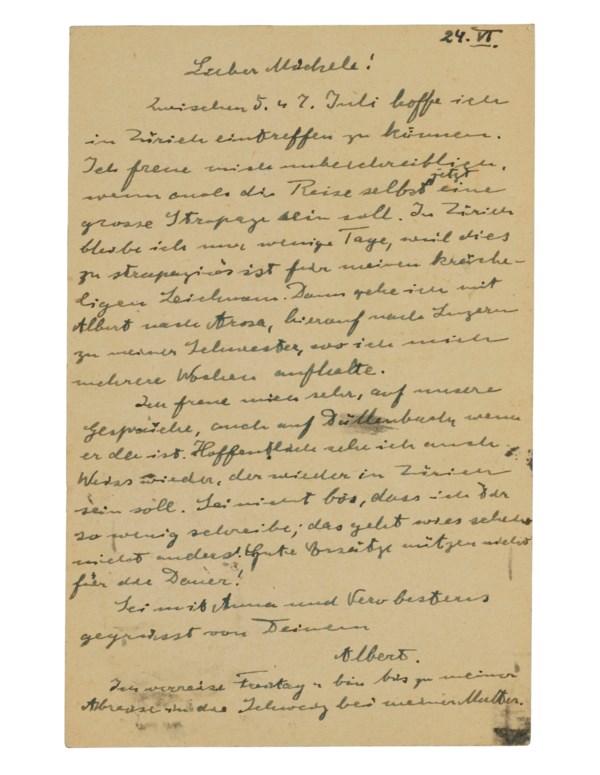 24. VI.
Lieber Michele!
Zwischen 5. u 7. Juli hoffe ich
in Zürich eintreffen zu können.
Ich freue mich unbeschreiblich,
wenn auch die Reise selbst jetzt eine
grosse Strapaze sein soll. In Zürich
bleibe ich nur wenige Tage, weil dies
zu strapaziös ist für meinen kräche-
ligen Leichnam. Dann gehe ich mit
Albert nach Arosa, hierauf nach Luzern
zu meiner Schwester, wo ich mich
mehrere Wochen aufhalte.
Ich freue mich sehr, auf unsere
Gespräche, auch auf wenn
er da ist. Hoffentlich sehe ich auch
Weiss wieder, der wieder in Zürich
sein soll. Sei nicht bös, dass ich Dir
so wenig schreibe; das geht wies scheint
nicht anders! Gute Vorsätze nützen nicht
für die Dauer!
Sei mit Anna und Vero bestens
gegrüsst von Deinem
Albert.
Ich verreise Freitag u bin bis zu meiner
Abreise in die Schweiz bei meiner Mutter.